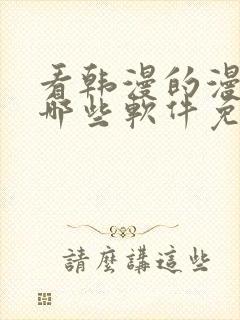 看韩漫的漫
哪些軟件免
請麼講這些